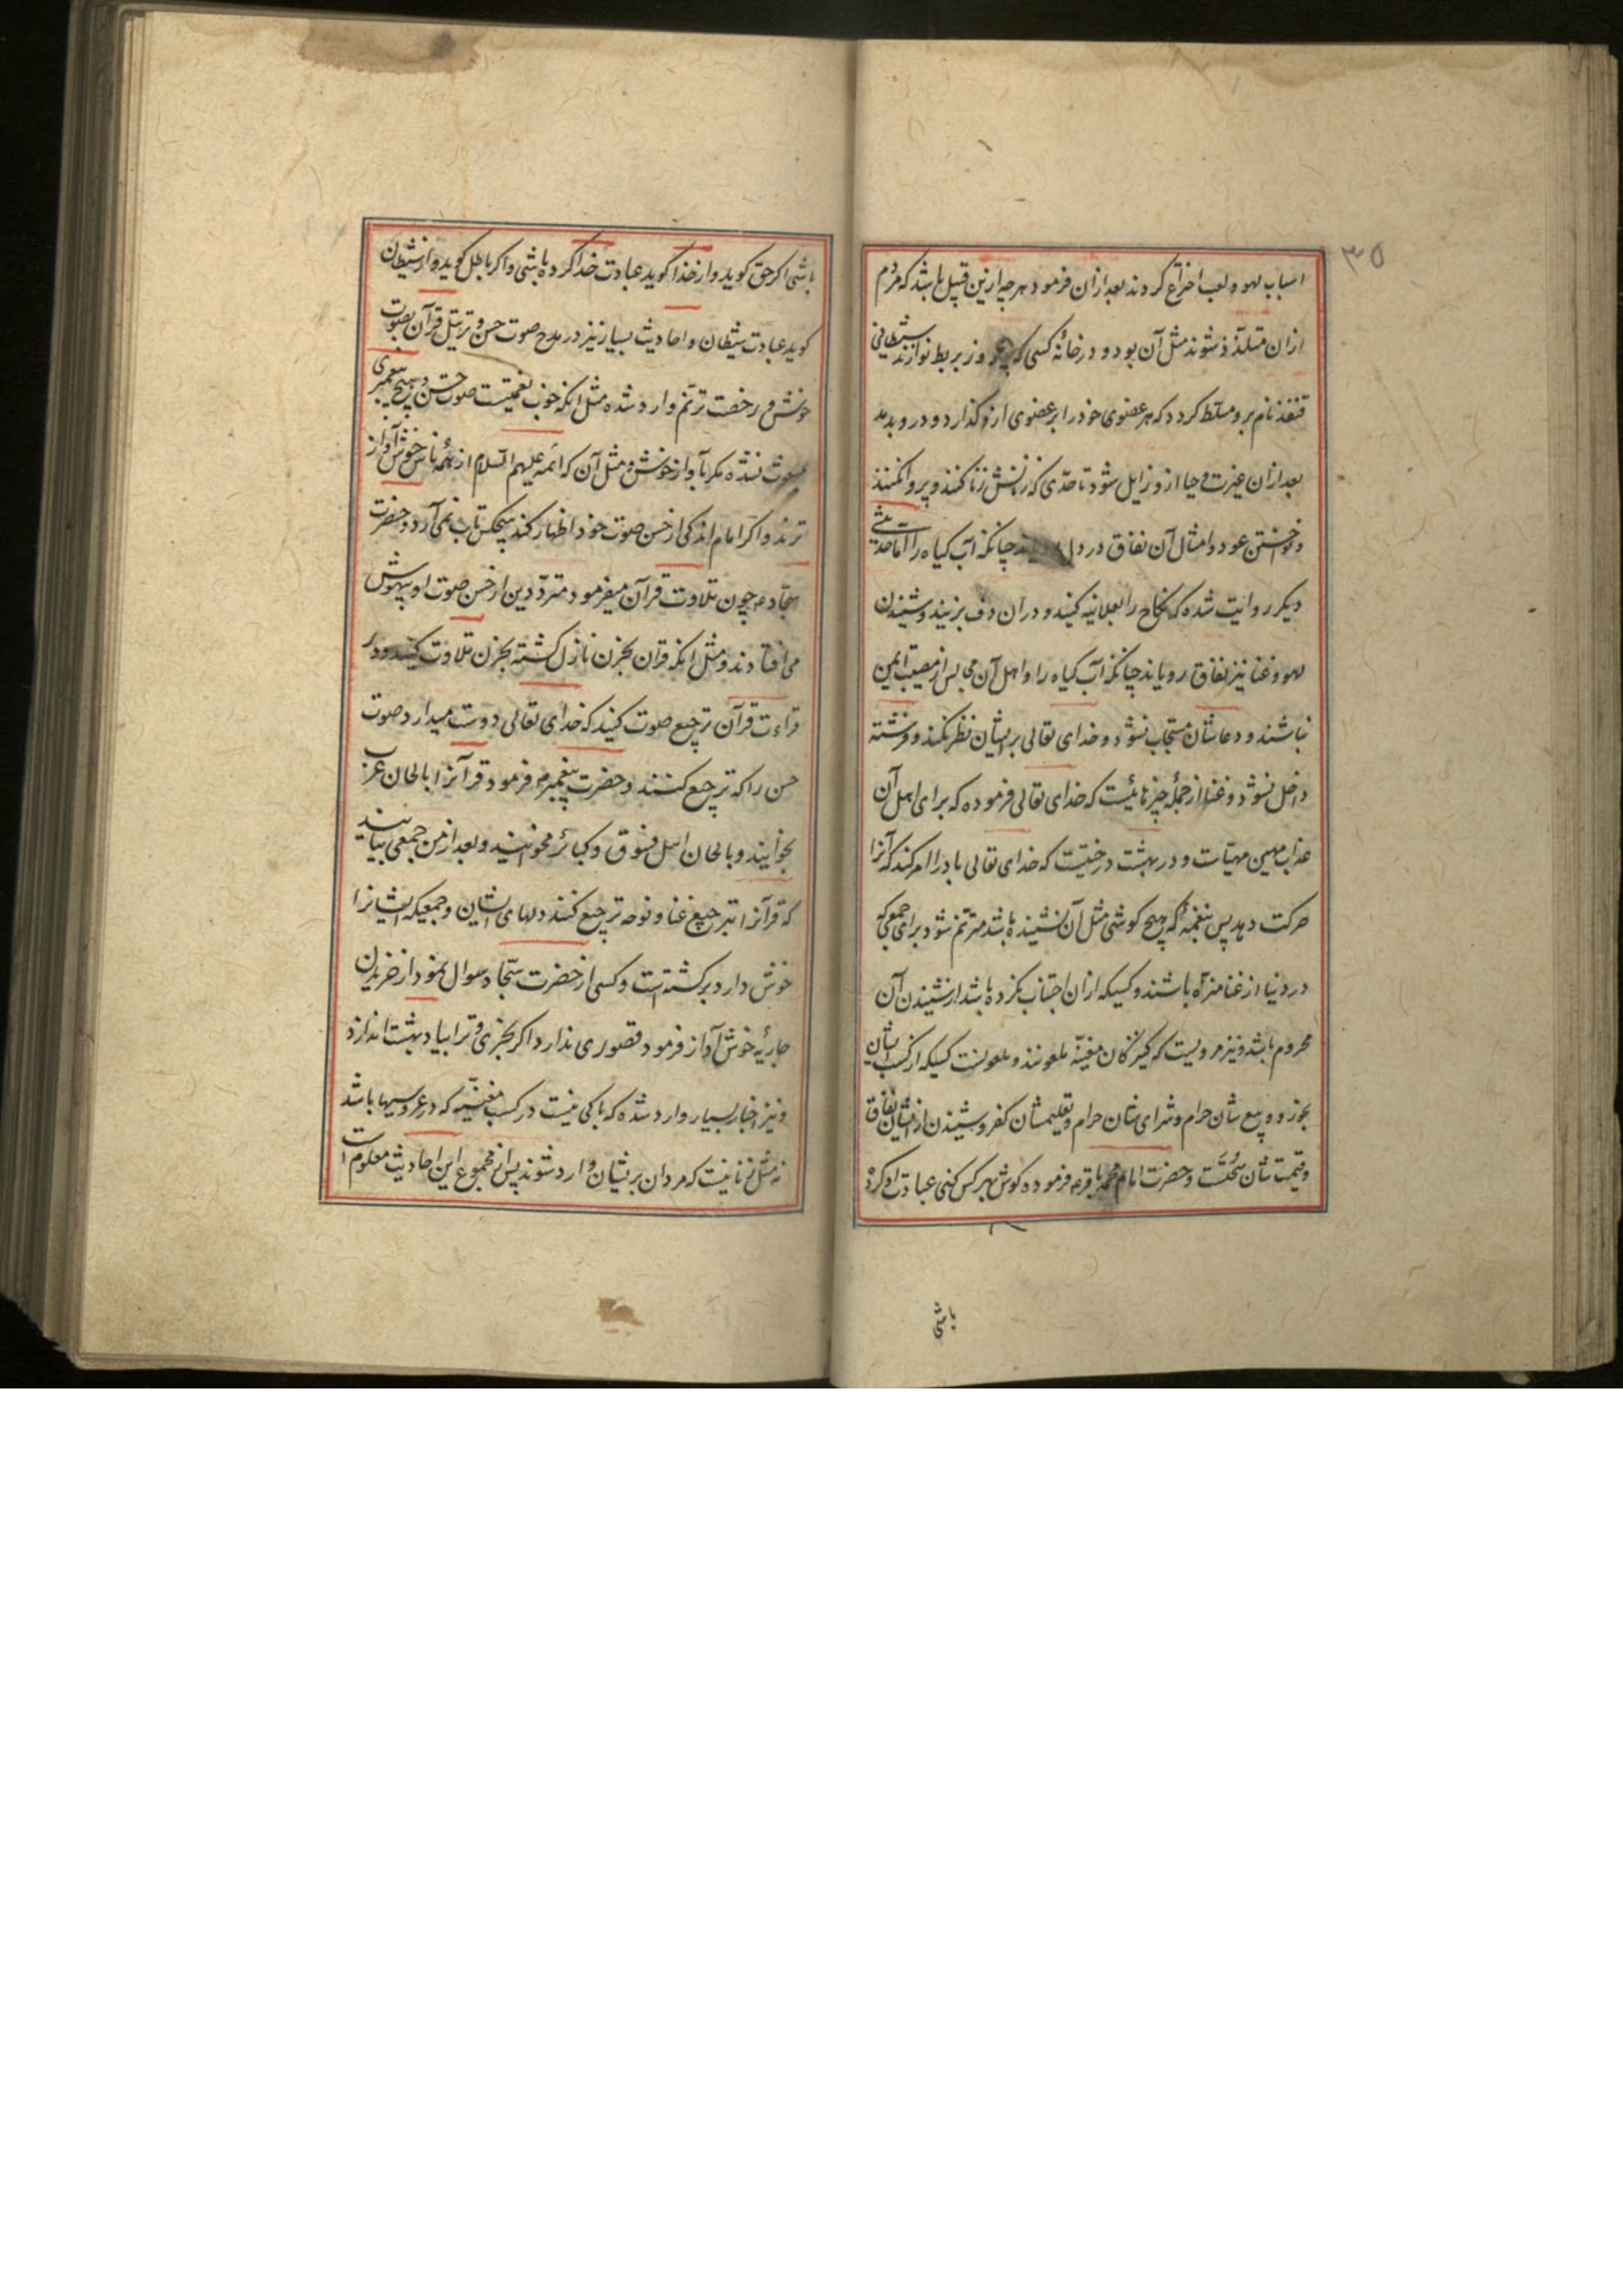 ۳۵
اسباب لهو و لعب اختراع کردند بعد ازان فرمود هر چه ازین قبیل باشد که مردم
ازان متلذذ شوند مثل آن بود و در خانهٔ کسی که روز بربط نوازند شیطانی
قنفذ نام برو مسلط کردد که هر عضوی خود را بر عضوی ازو گذارد و درو بدمد
بعد ازان غیرت و حیا ازو زایل شود تا حدی که زنانش زنا کنند و پروا نکنند
و نواختن عود و امثال آن نفاق در دل چنانکه آب کیاه را اما حدیثی
دیکر روایت شده که نکاح را بعلانیه کنید و دران دف بزنید و شنیدن
لهو و غنا نیز نفاق رویاند چنانکه آب کیاه را و اهل آن مجالس از مصیبت ایمن
نباشند و دعاشان مستجاب نشود و خدای تعالی بر ایشان نظر نکند و فرشته
داخل نشود و غنا از جملهٔ چیزهائیست که خدای تعالی فرموده که برای اهل آن
عذاب مهین مهیاست و در بهشت درختیست که خدای تعالی باد را امر کند که آنرا
حرکت دهد پس بنغمهٔ که هیچ کوشی مثل آن نشنیده باشد مترنم شود برای جمعی که
در دنیا از غنا منزه باشند و کسیکه ازان اجتناب نکرده باشد از شنیدن آن
محروم باشد و نیز مرویست که کنیزکان مغنیه ملعونند و ملعونست کسیکه از کسب ایشان
بخورد و بیع شان حرام و شرای شان حرام و تعلیمشان کفر و شنیدن از ایشان نفاق
و قیمت شان سُحْتَست و حضرت امام محمد باقر ع فرموده کوش بهر کس کنی عبادت او کردهٔ
باشی
باشی اکر حق کوید و از خدا کوید عبادت خدا کرده باشی و اکر باطل کوید و از شیطان
کوید عبادت شیطان و احادیث بسیار نیز در مدح صوت حسن و ترتیل قرآن بصوت
خوش و رخصت ترنم وارد شده مثل انکه خوب نعمتیست صوت حسن و هیچ پیغمبری
مبعوث نشده مکر بآواز خوش و مثل آن که ائمه علیهم السلام از همهٔ ناس خوش آواز
ترند و اکر امام اندکی از حسن صوت خود اظهار کند هیچکس تاب نمی آرد و حضرت
سجاد ع چون تلاوت قرآن میفرمود مترددین از حسن صوت او بیهوش
می افتادند و مثل انکه قران بحزن نازل کشته بحزن تلاوت کنید و در
قراءت قرآن ترجیع صوت کنید که خدای تعالی دوست میدارد صوت
حسن را که ترجیع کنند و حضرت پیغمبر ص فرمود قرآنرا بالحان عرب
بخوانید و بالحان اهل فسوق و کبائر مخوانید و بعد از من جمعی بیایند
که قرآنرا بترجیع غنا و نوحه ترجیع کنند دلهای ایشان و جمعیکه ایشانرا
خوش دارد برکشته است و کسی از حضرت سجاد سوال نمود از خریدن
جاریهٔ خوش آواز فرمود قصوری ندارد اکر بخری و ترا بیاد بهشت اندازد
و نیز اخبار بسیار وارد شده که باکی نیست در کسب مغنیه که در عروسیها باشد
نه مثل زنانیست که مردان بریشان وارد شوند پس از مجموع این احادیث معلوم است